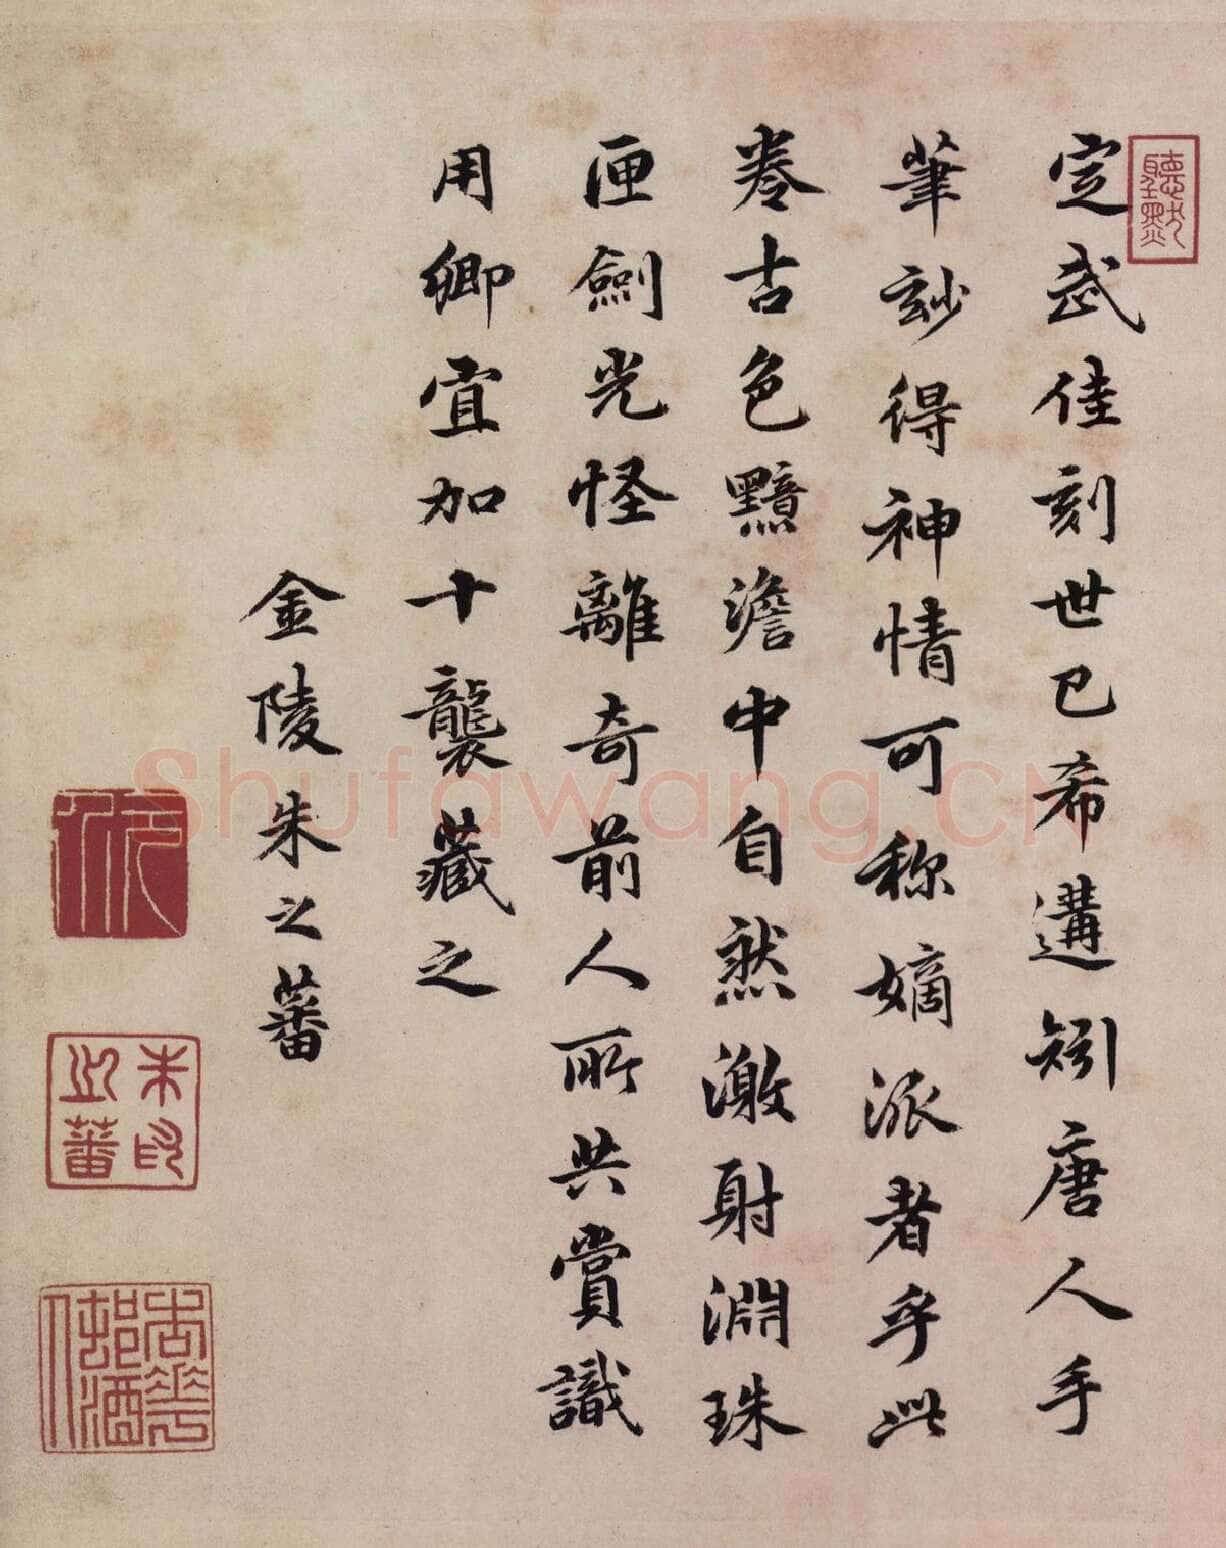 聽默
定武佳刻世已希遘矧唐人手
筆玅得神情可称嫡派者乎此
卷古色黯澹中自然激射淵珠
匣劍光怪離奇前人所共賞識
用卿宜加十襲藏之
金陵朱之蕃
朱之蕃印
Shufawang.CN